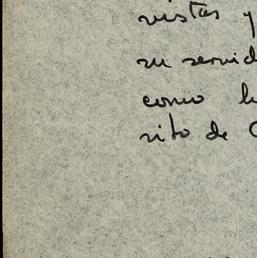 vistas y
su servid
como h
rito de C